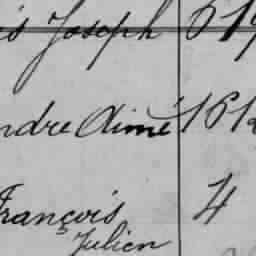 is Joseph 619
ndre Aimé 1612
François 4
Julien